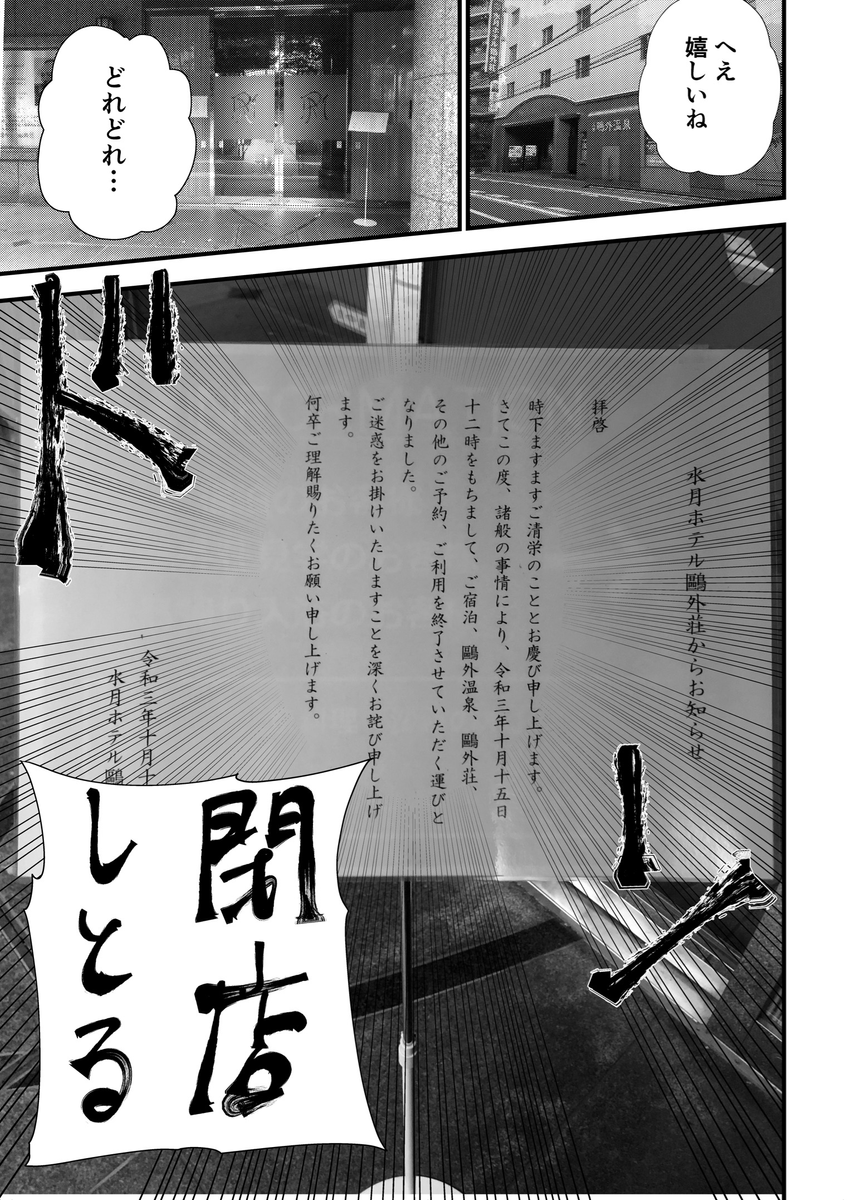 へえ
嬉しいね
鴎外温泉
どれどれ…
水月ホテル鷗外荘からお知らせ
拝啓
時下ますますご清栄のこととお慶び申し上げます。
さてこの度、諸般の事情により、令和三年十月十五日
十二時をもちまして、ご宿泊、鷗外温泉、鷗外荘、
その他のご予約、ご利用を終了させていただく運びと
なりました。
ご迷惑をお掛けいたしますことを深くお詫び申し上げ
ます。
何卒ご理解賜りたくお願い申し上げます。
令和三年十月十
水月ホテル鷗
ドン
閉店
しとる